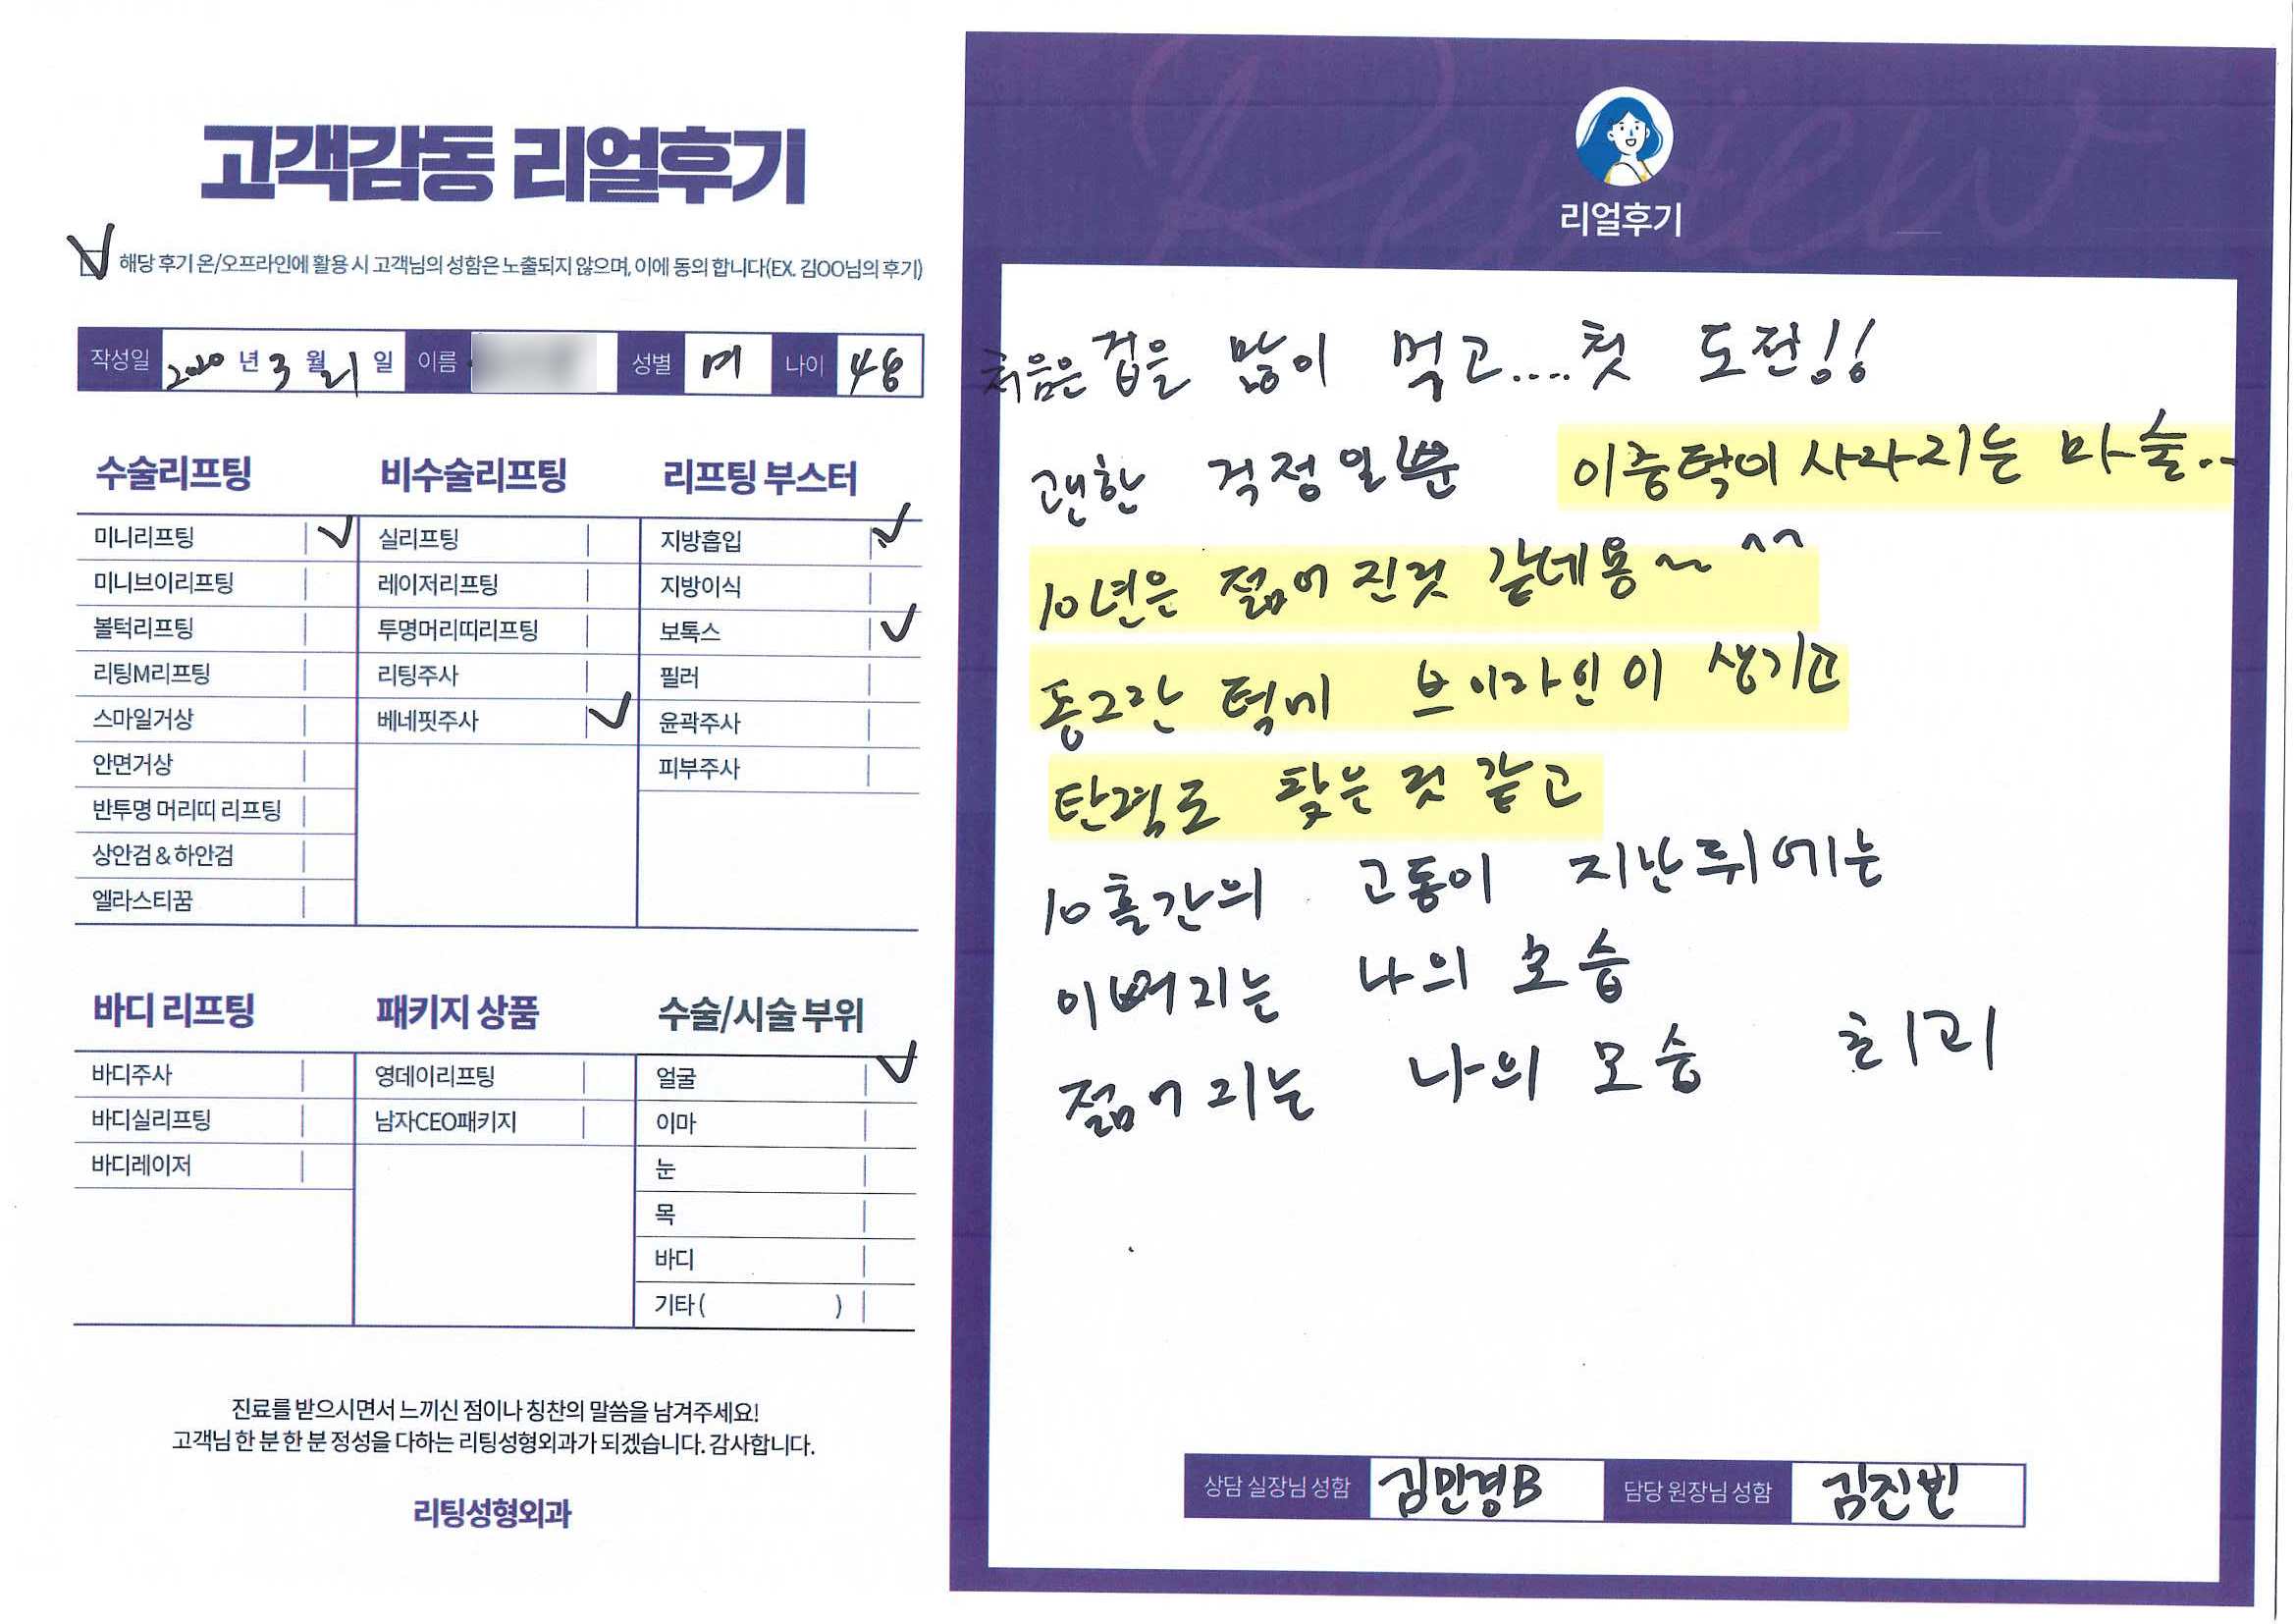 고객감동 리얼후기
해당 후기 온/오프라인에 활용 시 고객님의 성함은 노출되지 않으며, 이에 동의 합니다(EX. 김OO님의 후기)
작성일 2020 년 3 월 21 일 이름 성별 여 나이 48
수술리프팅
미니리프팅
미니브이리프팅
볼턱리프팅
리팅M리프팅
스마일거상
안면거상
반투명 머리띠 리프팅
상안검 & 하안검
엘라스티꿈
비수술리프팅
실리프팅
레이저리프팅
투명머리띠리프팅
리팅주사
베네핏주사
리프팅 부스터
지방흡입
지방이식
보톡스
필러
윤곽주사
피부주사
바디 리프팅
바디주사
바디실리프팅
바디레이저
패키지 상품
영데이리프팅
남자CEO패키지
수술/시술 부위
얼굴
이마
눈
목
바디
기타 ( )
진료를 받으시면서 느끼신 점이나 칭찬의 말씀을 남겨주세요!
고객님 한 분 한 분 정성을 다하는 리팅성형외과가 되겠습니다. 감사합니다.
리팅성형외과
Review
리얼후기
처음은 겁을 많이 먹고.... 첫 도전!!
괜한 걱정일뿐 이중턱이 사라지는 마술..
10년은 젊어 진것 같네용~ ^^
동그란 턱에 브이라인이 생기고
탄력도 찾은 것 같고
10흘간의 고통이 지난뒤에는
이뻐지는 나의 모습
젊어지는 나의 모습 최고
상담 실장님 성함 김민경B 담당 원장님 성함 김진빈